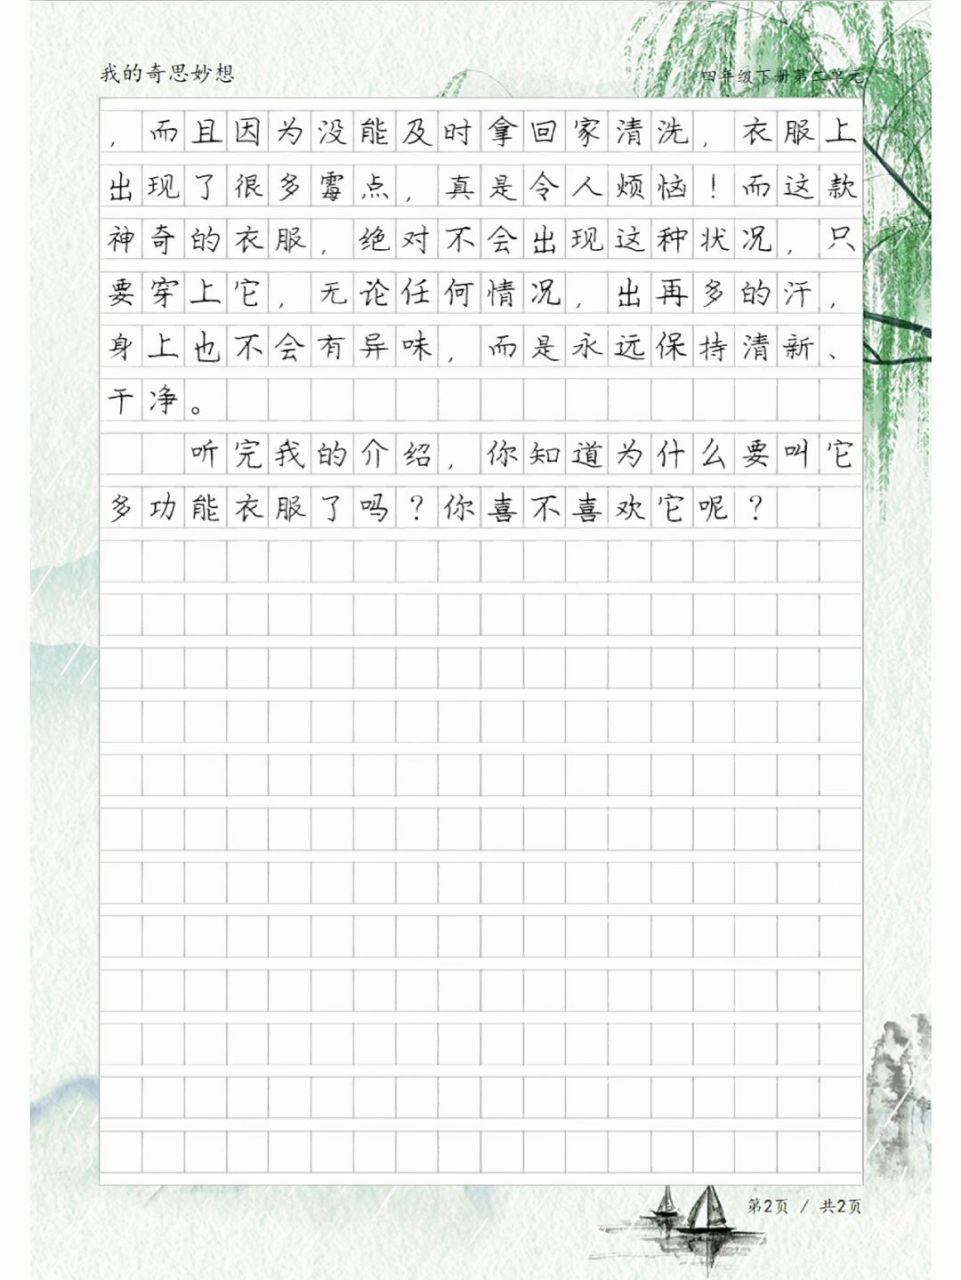 我的奇思妙想
四年级下册第二单元
，而且因为没能及时拿回家清洗，衣服上
出现了很多霉点，真是令人烦恼！而这款
神奇的衣服，绝对不会出现这种状况，只
要穿上它，无论任何情况，出再多的汗，
身上也不会有异味，而是永远保持清新、
干净。
听完我的介绍，你知道为什么要叫它
多功能衣服了吗？你喜不喜欢它呢？
第2页 / 共2页